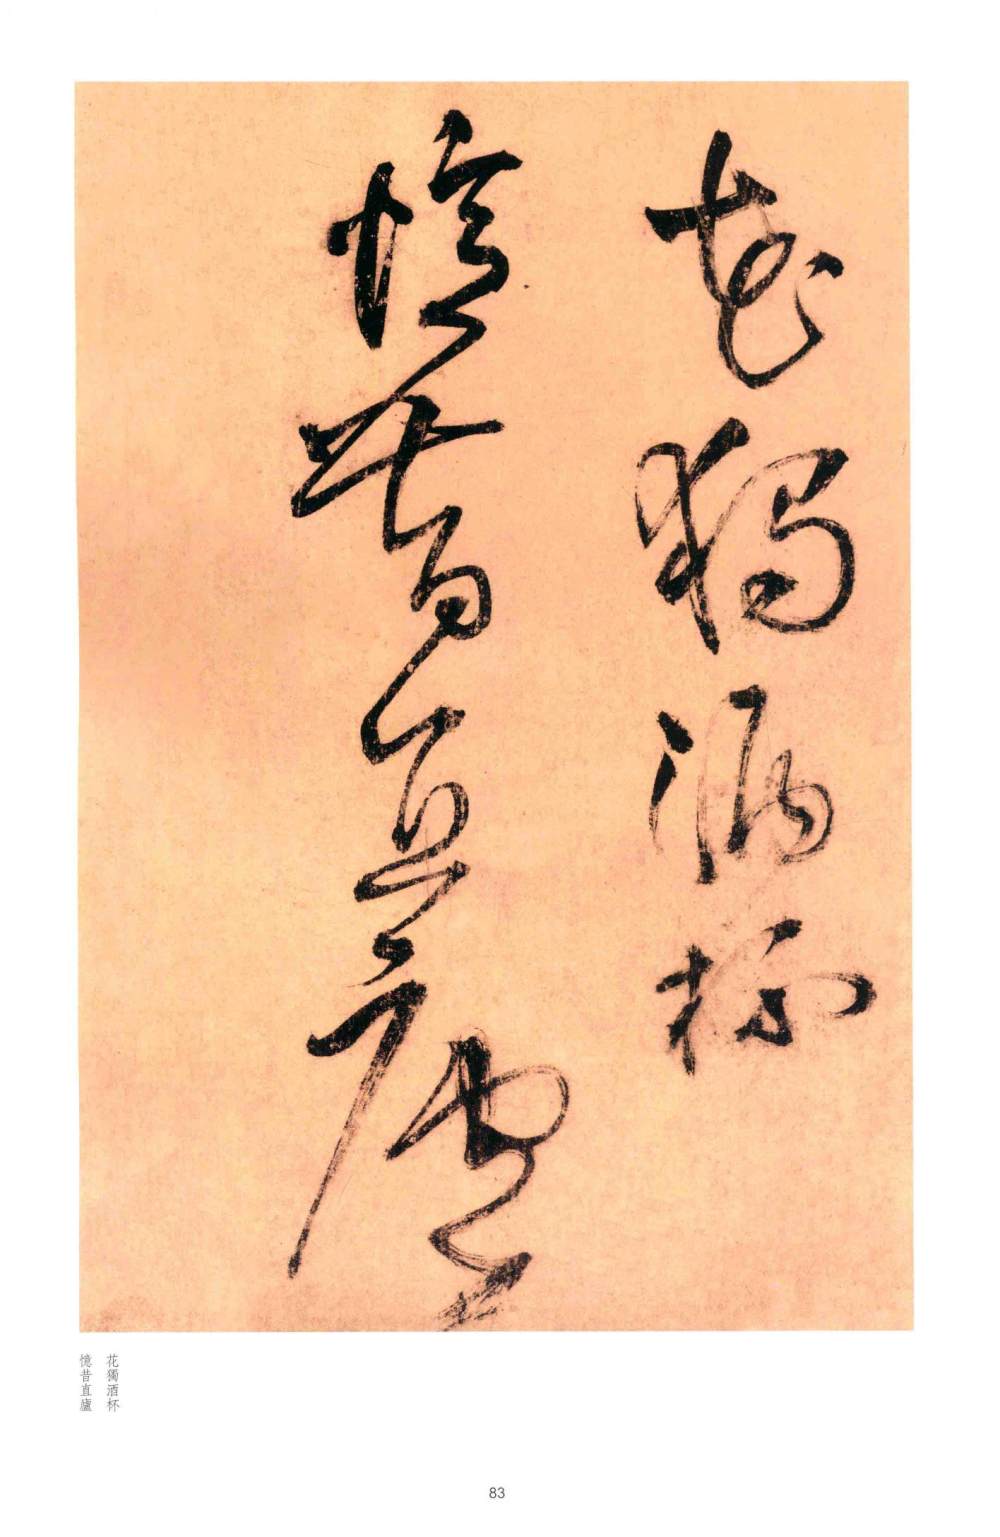 花獨酒杯
憶昔直廬
花獨酒杯
憶昔直廬
83